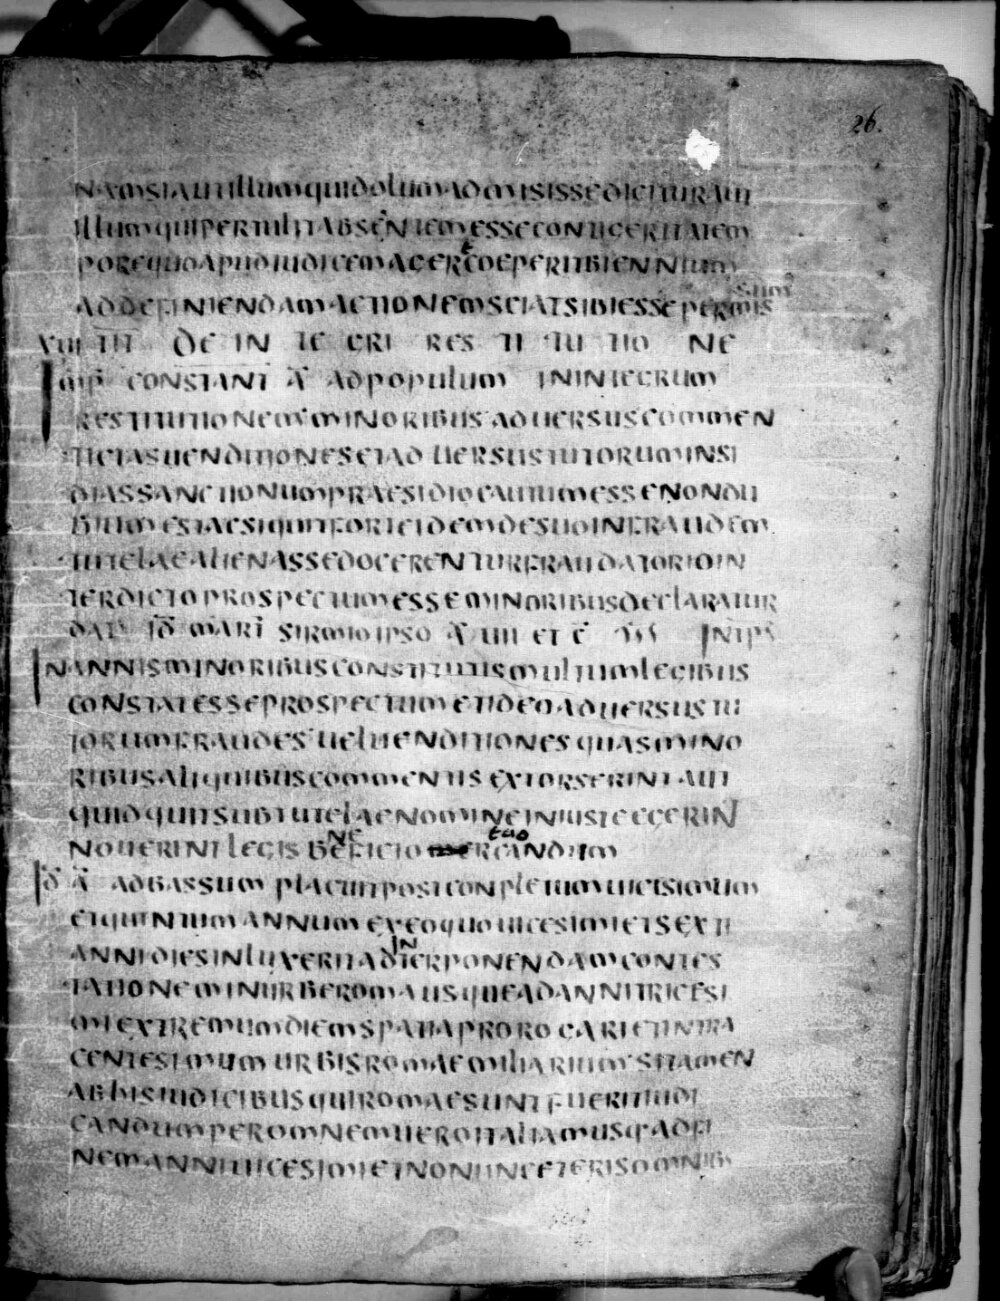 26.
NAMSIAUTILLUMQUIDOLUMADMISISSEDICITURAUT
ILLUMQUIPERTULITABSENTEMESSECONTIGERITATEM
POREQUOAPUDIUDICEMACERtCOEPERITBIENNIUM
ADDEFINIENDAMACTIONEMSCIATSIBIESSEPERMIS SUM
VIIII DE IN TE GRI RES TI TU TIO NE
IMP CONSTANT A ADPOPULUM ININTEGRUM
RESTITUTIONEMMINORIBUSADUERSUSCOMMEN
TICIASUENDITIONESETADUERSUSTUTORUMINSI
DIASSANCTIONUMPRAESIDIOCAUTUMESSENONDU
BIUMESTACSIQUITFORTEIDEMDESUOINFRAUDEM
TUTELAEALIENASSEDOCERENTURFRAUDATORIOIN
TERDICTOPROSPECTUMESSEMINORIBUSDECLARATUR
DAT ID MART SIRMIOIPSO A IIII ET C CSS INTPT
INANNISMINORIBUSCONSTITUTISMULTUMLEGIBUS
CONSTATESSEPROSPECTUMETIDEOADUERSUSTU
TORUMFRAUDESUELUENDITIONESQUASMINO
RIBUSALIQUIBUSCOMMENTISEXTORSERINTAUT
QUIDQUITSUBTUTELAENOMINEINIUSTEGEGERIN
NOUERINTLEGISBENEFICIO EUACUANDUM
ID A ADBASSUM PLACUITPOSTCONPLETUMUICESIMUM
ETQUINTUMANNUMEXEOQUOUICESIMIETSEXTI
ANNIDIESINLUXERITADINTERPONENDAMCONTES
TATIONEMINURBEROMAUSQUEADANNITRICESI
MIEXTREMUMDIEMSPATIAPROROGARIETINTRA
CENTESIMUMURBISROMAEMILIARIUMSITAMEN
ABHISIUDICIBUSQUIROMAESUNTFUERITIUDI
CANDUMPEROMNEMUEROITALIAMUSQADFI
NEMANNIUICESIMIETNONIINCETERISOMNIB